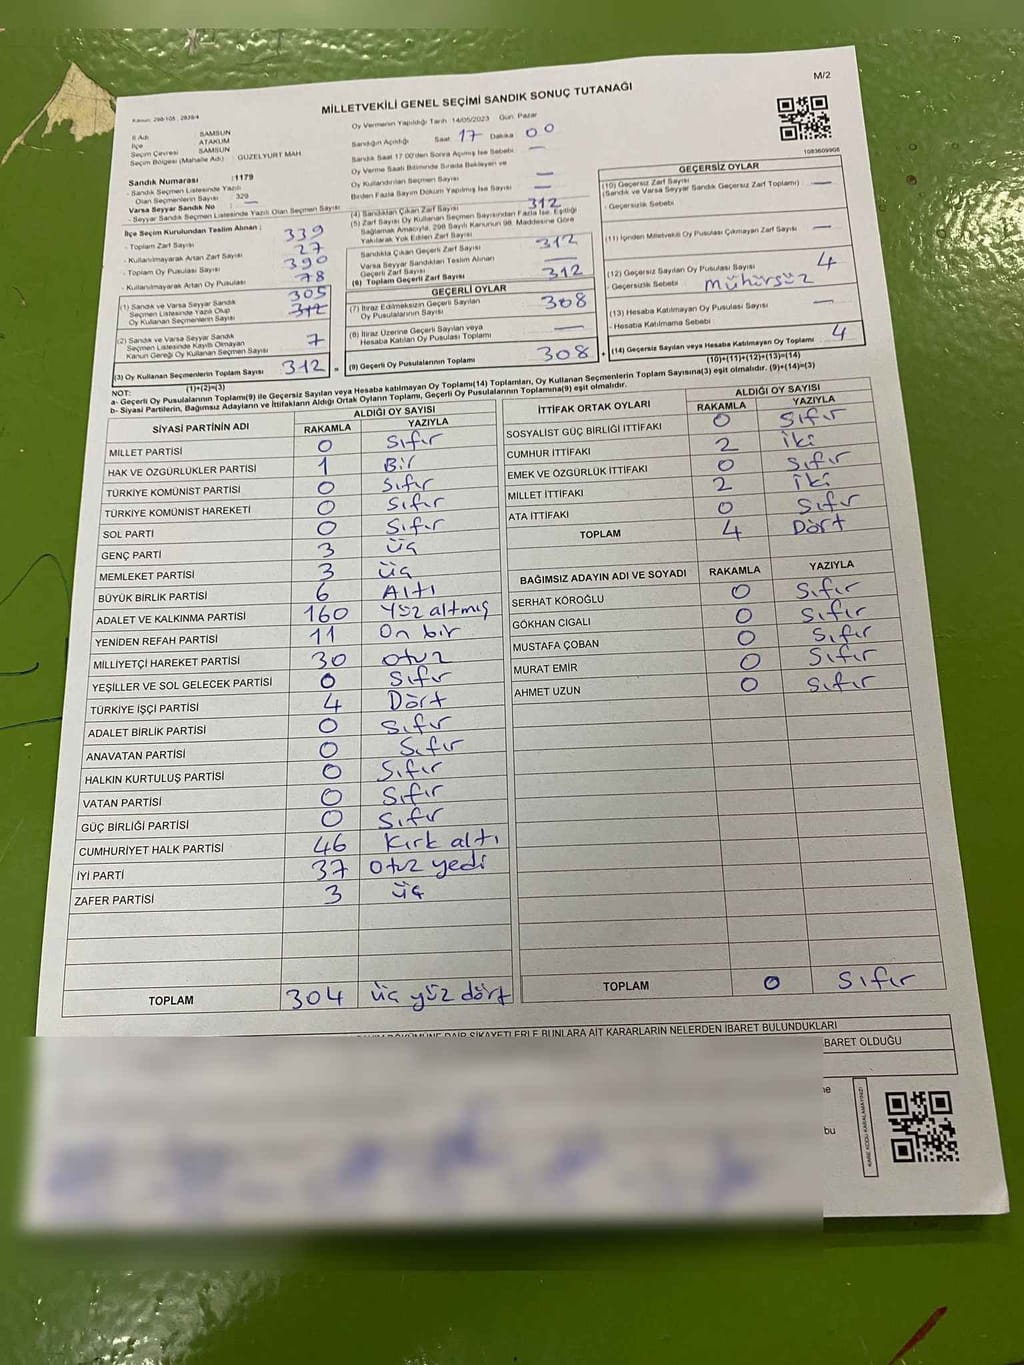 M/2
MİLLETVEKİLİ GENEL SEÇİMİ SANDIK SONUÇ TUTANAĞI
Kanun: 298/105 , 2839/4
Oy Vermenin Yapıldığı Tarih 14/05/2023 Gün: Pazar
İl Adı : SAMSUN
İlçe : ATAKUM
Seçim Çevresi : SAMSUN
Seçim Bölgesi (Mahalle Adı) : GÜZELYURT MAH
Sandığın Açıldığı Saat 17 Dakika 00
Sandık Saat 17:00'den Sonra Açılmış İse Sebebi —
Oy Verme Saati Bitiminde Sırada Bekleyen ve
Oy Kullandırılan Seçmen Sayısı —
Birden Fazla Sayım Döküm Yapılmış İse Sayısı —
1083609908
Sandık Numarası :1179
- Sandık Seçmen Listesinde Yazılı
Olan Seçmenlerin Sayısı : 329
Varsa Seyyar Sandık No : —
- Seyyar Sandık Seçmen Listesinde Yazılı Olan Seçmen Sayısı:
İlçe Seçim Kurulundan Teslim Alınan :
- Toplam Zarf Sayısı 339
- Kullanılmayarak Artan Zarf Sayısı 27
- Toplam Oy Pusulası Sayısı 390
- Kullanılmayarak Artan Oy Pusulası 78
(1) Sandık ve Varsa Seyyar Sandık
Seçmen Listesinde Yazılı Olup
Oy Kullanan Seçmenlerin Sayısı 305 312
(2) Sandık ve Varsa Seyyar Sandık
Seçmen Listesinde Kayıtlı Olmayan
Kanun Gereği Oy Kullanan Seçmen Sayısı 7
(3) Oy Kullanan Seçmenlerin Toplam Sayısı 312
(1)+(2)=(3)
(4) Sandıktan Çıkan Zarf Sayısı 312
(5) Zarf Sayısı Oy Kullanan Seçmen Sayısından Fazla İse, Eşitliği
Sağlamak Amacıyla, 298 Sayılı Kanunun 98. Maddesine Göre
Yakılarak Yok Edilen Zarf Sayısı —
Sandıkta Çıkan Geçerli Zarf Sayısı 312
Varsa Seyyar Sandıktan Teslim Alınan
Geçerli Zarf Sayısı —
(6) Toplam Geçerli Zarf Sayısı 312
GEÇERLİ OYLAR
(7) İtiraz Edilmeksizin Geçerli Sayılan
Oy Pusulalarının Sayısı 308
(8) İtiraz Üzerine Geçerli Sayılan veya
Hesaba Katılan Oy Pusulası Toplamı —
= (9) Geçerli Oy Pusulalarının Toplamı 308
GEÇERSİZ OYLAR
(10) Geçersiz Zarf Sayısı
(Sandık ve Varsa Seyyar Sandık Geçersiz Zarf Toplamı) —
- Geçersizlik Sebebi
(11) İçinden Milletvekili Oy Pusulası Çıkmayan Zarf Sayısı —
(12) Geçersiz Sayılan Oy Pusulası Sayısı 4
- Geçersizlik Sebebi mühürsüz
(13) Hesaba Katılmayan Oy Pusulası Sayısı —
- Hesaba Katılmama Sebebi
+ (14) Geçersiz Sayılan veya Hesaba Katılmayan Oy Toplamı 4
(10)+(11)+(12)+(13)=(14)
NOT:
a- Geçerli Oy Pusulalarının Toplamı(9) ile Geçersiz Sayılan veya Hesaba katılmayan Oy Toplamı(14) Toplamları, Oy Kullanan Seçmenlerin Toplam Sayısına(3) eşit olmalıdır. (9)+(14)=(3)
b- Siyasi Partilerin, Bağımsız Adayların ve İttifakların Aldığı Ortak Oyların Toplamı, Geçerli Oy Pusulalarının Toplamına(9) eşit olmalıdır.
SİYASİ PARTİNİN ADI ALDIĞI OY SAYISI
RAKAMLA YAZIYLA
MİLLET PARTİSİ 0 Sıfır
HAK VE ÖZGÜRLÜKLER PARTİSİ 1 Bir
TÜRKİYE KOMÜNİST PARTİSİ 0 Sıfır
TÜRKİYE KOMÜNİST HAREKETİ 0 Sıfır
SOL PARTİ 0 Sıfır
GENÇ PARTİ 3 üç
MEMLEKET PARTİSİ 3 üç
BÜYÜK BİRLİK PARTİSİ 6 Altı
ADALET VE KALKINMA PARTİSİ 160 Yüz altmış
YENİDEN REFAH PARTİSİ 11 On bir
MİLLİYETÇİ HAREKET PARTİSİ 30 otuz
YEŞİLLER VE SOL GELECEK PARTİSİ 0 Sıfır
TÜRKİYE İŞÇİ PARTİSİ 4 Dört
ADALET BİRLİK PARTİSİ 0 Sıfır
ANAVATAN PARTİSİ 0 Sıfır
HALKIN KURTULUŞ PARTİSİ 0 Sıfır
VATAN PARTİSİ 0 Sıfır
GÜÇ BİRLİĞİ PARTİSİ 0 Sıfır
CUMHURİYET HALK PARTİSİ 46 Kırk altı
İYİ PARTİ 37 Otuz yedi
ZAFER PARTİSİ 3 üç
TOPLAM 304 üç yüz dört
İTTİFAK ORTAK OYLARI ALDIĞI OY SAYISI
RAKAMLA YAZIYLA
SOSYALİST GÜÇ BİRLİĞİ İTTİFAKI 0 Sıfır
CUMHUR İTTİFAKI 2 iki
EMEK VE ÖZGÜRLÜK İTTİFAKI 0 Sıfır
MİLLET İTTİFAKI 2 iki
ATA İTTİFAKI 0 Sıfır
TOPLAM 4 Dört
BAĞIMSIZ ADAYIN ADI VE SOYADI RAKAMLA YAZIYLA
SERHAT KÖROĞLU 0 Sıfır
GÖKHAN CIGALI 0 Sıfır
MUSTAFA ÇOBAN 0 Sıfır
MURAT EMİR 0 Sıfır
AHMET UZUN 0 Sıfır
TOPLAM 0 Sıfır
DÖKÜMÜNE DAİR ŞİKAYETLERLE BUNLARA AİT KARARLARIN NELERDEN İBARET BULUNDUKLARI
BARET OLDUĞU
bu
KARE KODU KARALAMAYINIZ!